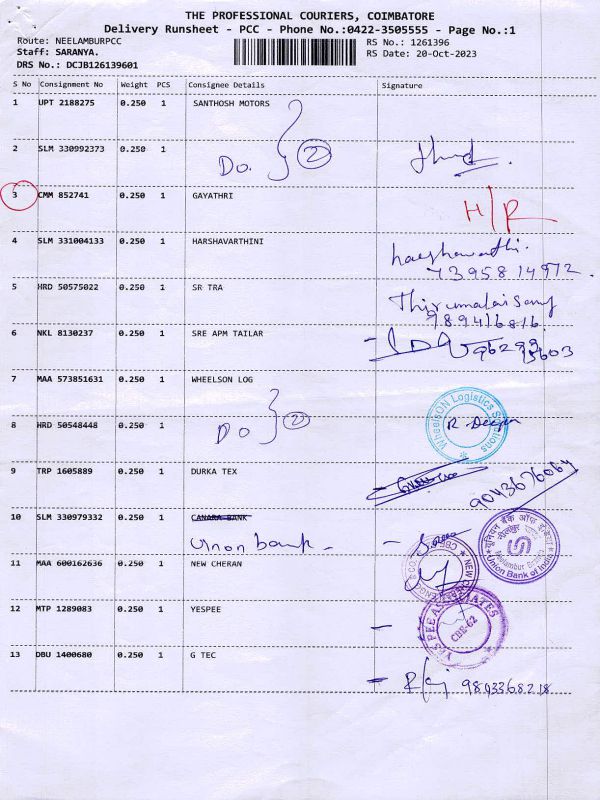 THE PROFESSIONAL COURIERS, COIMBATORE
Delivery Runsheet - PCC - Phone No.:0422-3505555 - Page No.:1
Route: NEELAMBURPCC
RS No.: 1261396
Staff: SARANYA.
RS Date: 20-Oct-2023
DRS No.: DCJB126139601
S No Consignment No Weight PCS Consignee Details Signature
1 UPT 2188275 0.250 1 SANTHOSH MOTORS
2 SLM 330992373 0.250 1
Do. 2
3 CMM 852741 0.250 1 GAYATHRI
H/R
4 SLM 331004133 0.250 1 HARSHAVARTHINI
7395814972.
5 HRD 50575022 0.250 1 SR TRA
Thirumalaisamy
989416816
6 NKL 8130237 0.250 1 SRE APM TAILAR
7 MAA 573851631 0.250 1 WHEELSON LOG
WheelsON Logistics Solutions
8 HRD 50548448 0.250 1
Do 2
R. Deepa
9 TRP 1605889 0.250 1 DURKA TEX
9043676064
10 SLM 330979332 0.250 1 CANARA BANK
Union bank -
यूनियन बैंक ऑफ इंडिया
Union Bank of India
11 MAA 600162636 0.250 1 NEW CHERAN
12 MTP 1289083 0.250 1 YESPEE
YES PEE ASSOCIATES
CBE-62
13 DBU 1400680 0.250 1 G TEC
9893368218